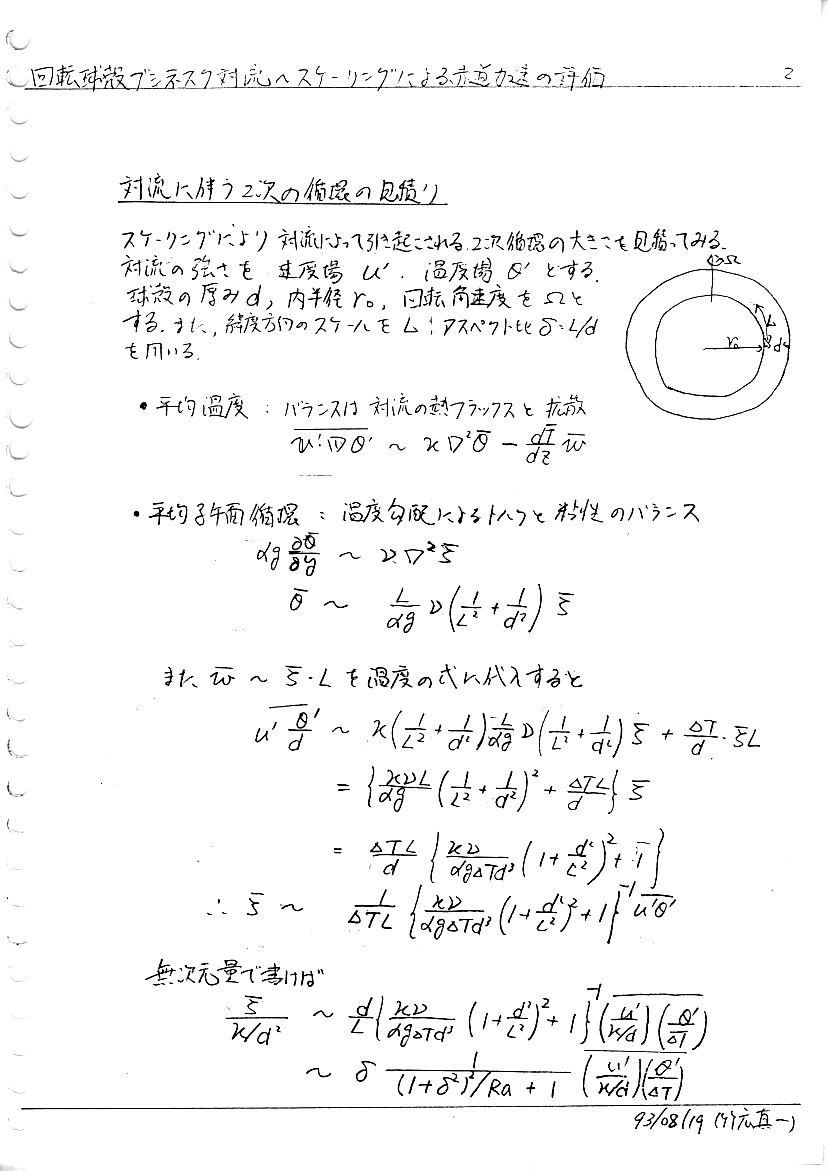 回転球殻ブシネスク対流へスケーリングによる赤道加速の評価 2
対流に伴う2次の循環の見積り
スケーリングにより対流によって引き起こされる2次循環の大きさを見積ってみる.
対流の強さを 速度場 u′. 温度場 θ′ とする.
球殻の厚み d, 内半径 r₀, 回転角速度を Ω と
する. また, 緯度方向のスケールを L : アスペクト比 δ=L/d
を用いる.
Ω
L
r₀
d
• 平均温度 : バランスは 対流の熱フラックスと 拡散
\overline{u′·∇θ′} ~ κ∇²\bar{θ} − \frac{d\bar{T}}{dz} \bar{w}
• 平均子午面循環 : 温度勾配によるトルクと 粘性のバランス
αg \frac{∂\bar{θ}}{∂y} ~ ν∇²\bar{ζ}
\bar{θ} ~ \frac{L}{αg} ν(\frac{1}{L²} + \frac{1}{d²}) \bar{ζ}
また \bar{w} ~ \bar{ζ}·L を温度の式に代入すると
\overline{u′\frac{θ′}{d}} ~ κ(\frac{1}{L²} + \frac{1}{d²})\frac{L}{αg} ν(\frac{1}{L²} + \frac{1}{d²}) \bar{ζ} + \frac{ΔT}{d}·\bar{ζ}L
= {\frac{κνL}{αg}(\frac{1}{L²} + \frac{1}{d²})² + \frac{ΔTL}{d}} \bar{ζ}
= \frac{ΔTL}{d} {\frac{κν}{αgΔTd³}(1+\frac{d²}{L²})² + 1}
∴ \bar{ζ} ~ \frac{1}{ΔTL} {\frac{κν}{αgΔTd³}(1+\frac{d²}{L²})² + 1}⁻¹ \overline{u′θ′}
無次元量で書けば
\frac{\bar{ζ}}{κ/d²} ~ \frac{d}{L}{\frac{κν}{αgΔTd³} (1+\frac{d²}{L²})² + 1}⁻¹ \overline{(\frac{u′}{κ/d})(\frac{θ′}{ΔT})}
~ δ \frac{1}{(1+δ²)²/Ra + 1} \overline{(\frac{u′}{κ/d})(\frac{θ′}{ΔT})}
93/08/19 (竹広真一)